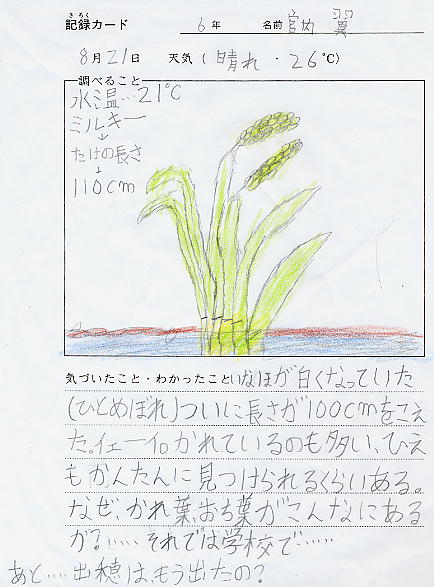 きろく
記録カード 6年 名前 宮内 翼
8月21日 天気(晴れ・26℃)
調べること
水温…21℃
ミルキー
↓
たけの長さ
↓
110cm
気づいたこと・わかったこと いなほが白くなっていた
(ひとめぼれ)ついに長さが100cmをこえ
た。イェーイ。かれているのも多い、ひえ
もかんたんに見つけられるくらいある。
なぜ、かれ葉、おち葉がこんなにある
か?…… それでは学校で……
あと…. 出穂は、もう出たの?